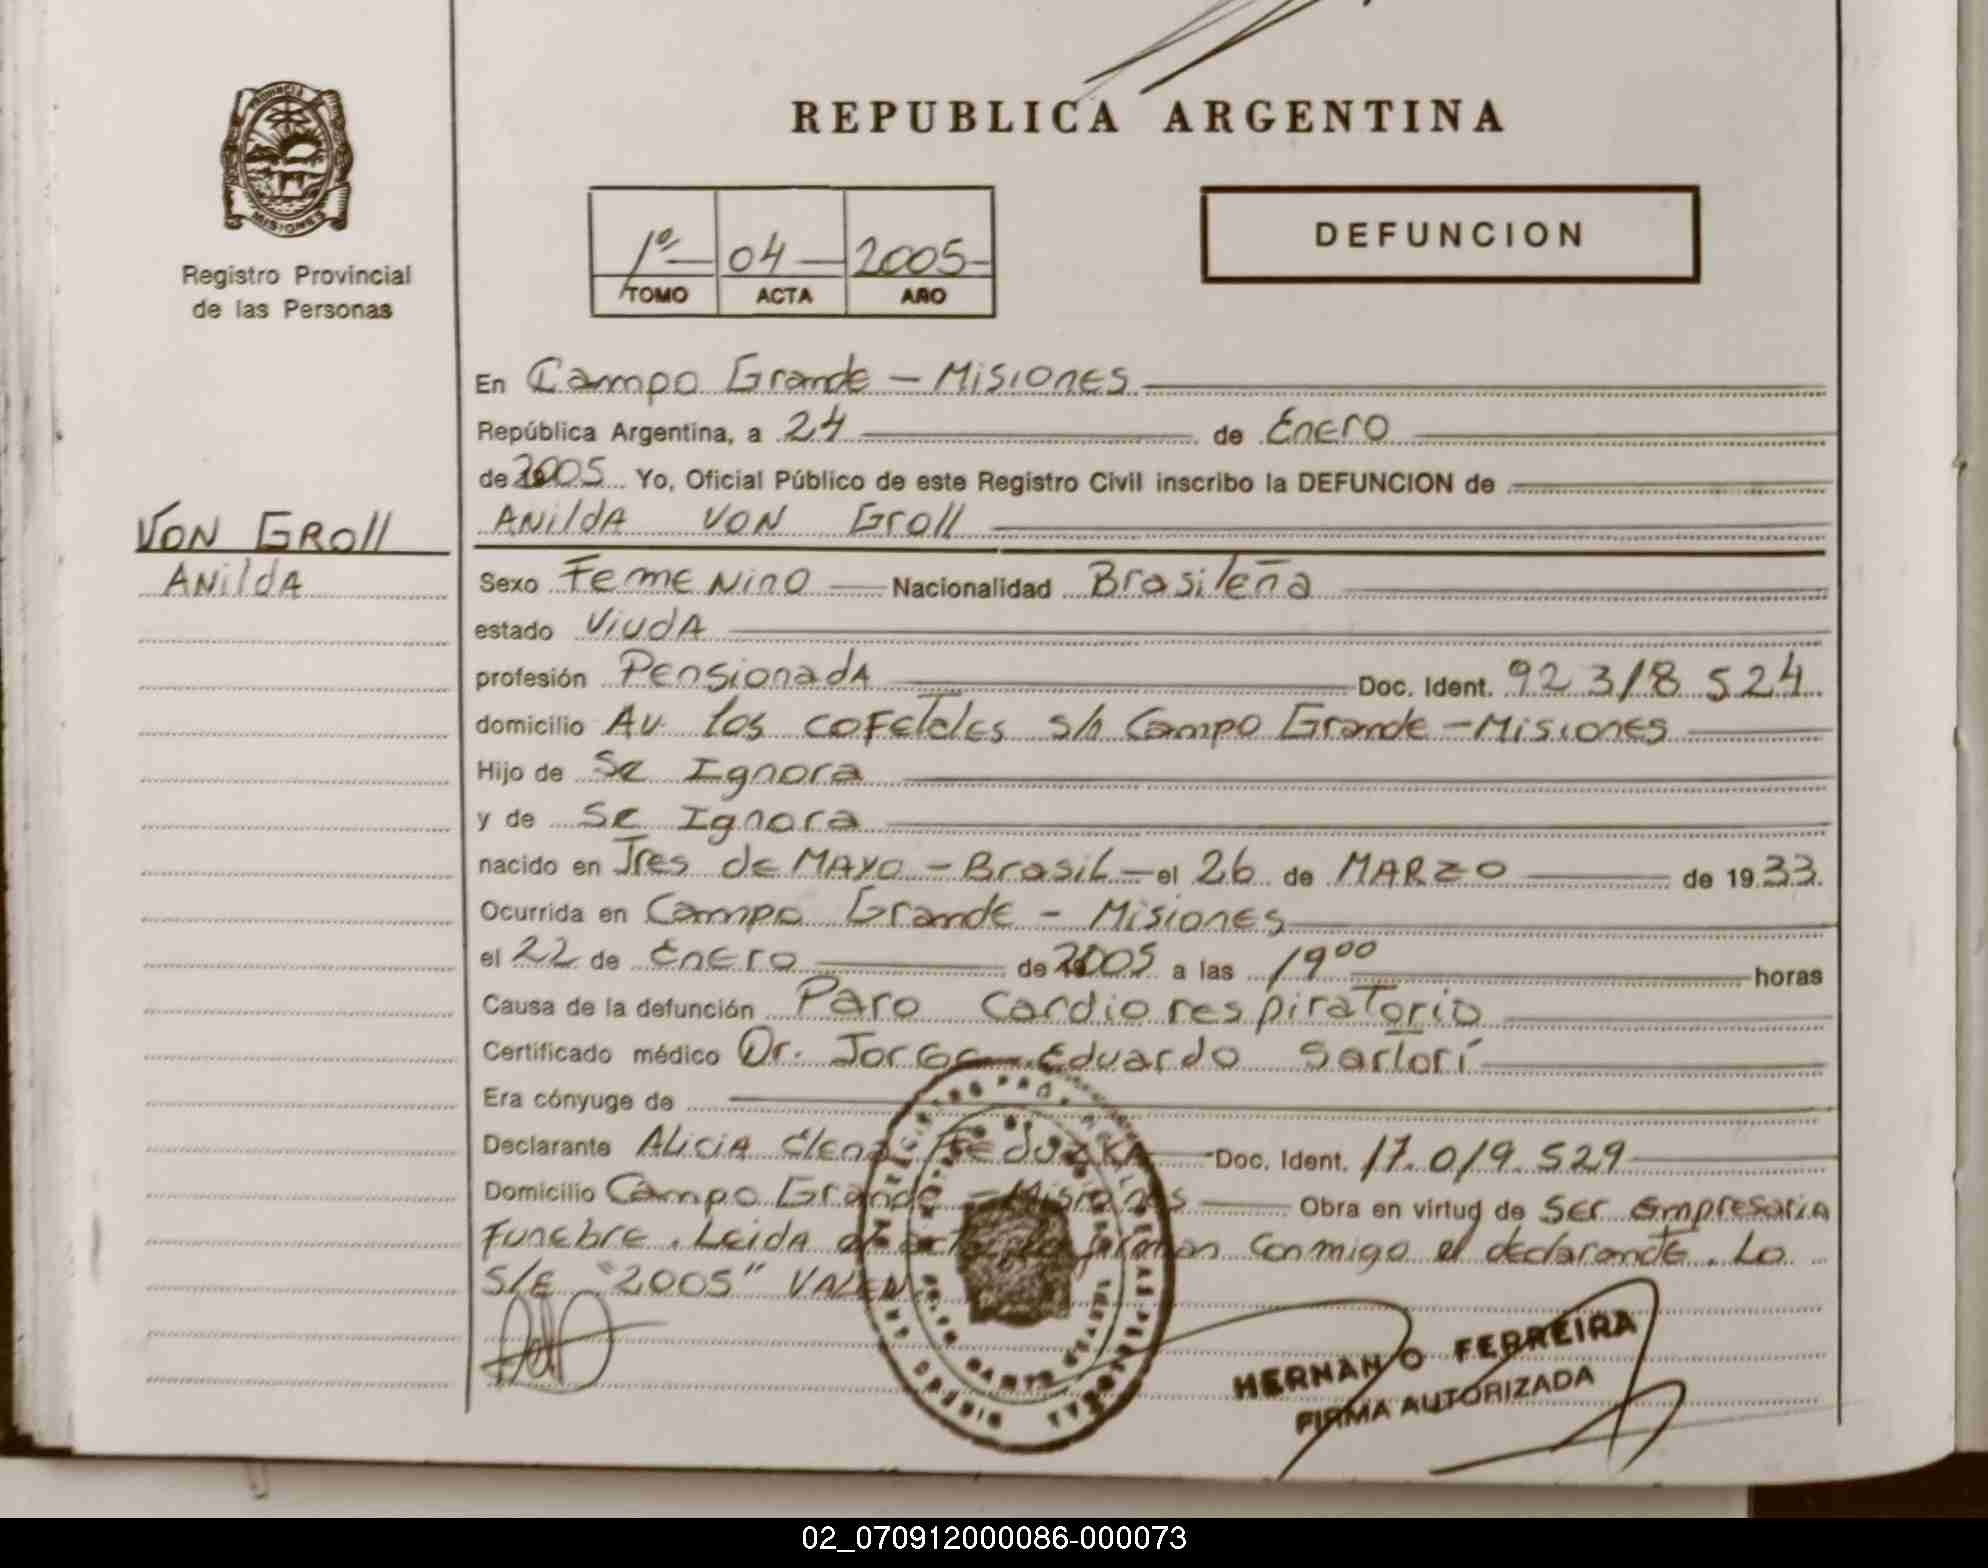 REPUBLICA ARGENTINA
PROVINCIA
MISIONES
Registro Provincial
de las Personas
1º 04 2005
TOMO ACTA AÑO
DEFUNCION
En Campo Grande - Misiones
República Argentina, a 24 de Enero
de 2005 Yo, Oficial Público de este Registro Civil inscribo la DEFUNCION de
VON GROll
ANildA
ANildA VON Groll
Sexo Femenino Nacionalidad Brasileña
estado ViudA
profesión PensionadA Doc. Ident. 92 318 524
domicilio Av. los s/n Campo Grande - Misiones
Hijo de Se Ignora
y de Se Ignora
nacido en Tres de MAYO - Brasil - el 26 de MARZO de 1933.
Ocurrida en Campo Grande - Misiones
el 22 de Enero de 2005 a las 19⁰⁰ horas
Causa de la defunción Paro Cardiorespiratorio
Certificado médico Dr. Jorge Eduardo Sartori
Era cónyuge de
Declarante AliciA Elena Doc. Ident. 17.019.529
Domicilio Campo Grande - Misiones Obra en virtud de Ser EmpresariA
Funebre. LeidA el acta la firman Conmigo el declarante. Lo
S/E "2005" VALEN.
HERNAN O FERREIRA
FIRMA AUTORIZADA
02_070912000086-000073